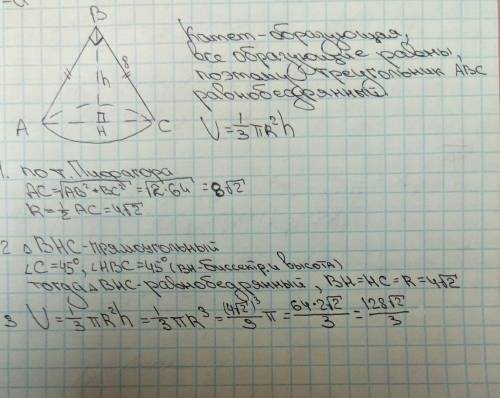 B
Катет-образующая,
все образующие равны,
поэтому треугольник ABC
равнобедренный
8
h
A
H
C
V=1/3 πR²h
1. по т. Пифагора
AC=√AB²+BC² =√2·64 =8√2
R=1/2 AC=4√2
2 △BHC-прямоугольный
∠C=45°, ∠HBC=45° (BH-биссектр. и высота)
тогда △BHC-равнобедренный, BH=HC=R=4√2
3 V=1/3 πR²h=1/3 πR³=(4√2)³/3 π=64·2√2/3=128√2/3